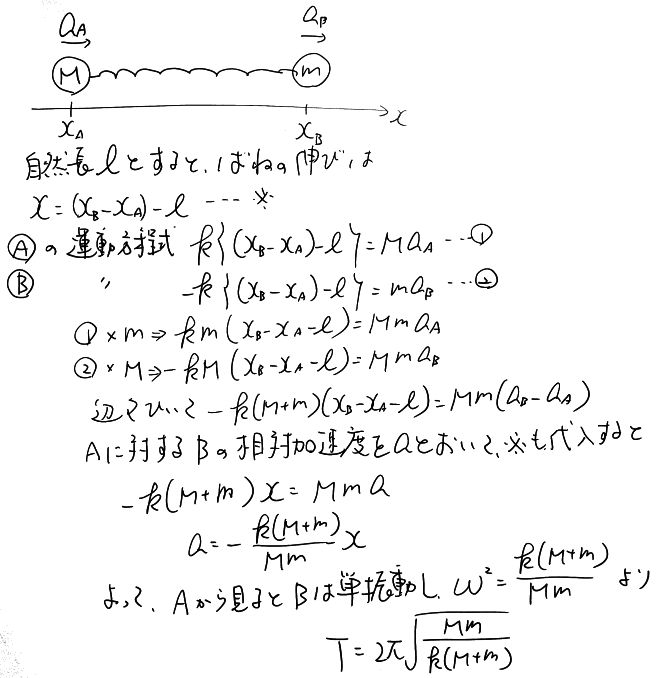 a_A a_B
M m
x_A x_B x
自然長lとすると、ばねの伸びは
x=(x_B-x_A)-l ---- ※
Ⓐの運動方程式 k{(x_B-x_A)-l}=Ma_A ---①
Ⓑ 〃 -k{(x_B-x_A)-l}=ma_B ---②
①×m⇒km(x_B-x_A-l)=Mma_A
②×M⇒-kM(x_B-x_A-l)=Mma_B
辺々ひいて -k(M+m)(x_B-x_A-l)=Mm(a_B-a_A)
Aに対するBの相対加速度をaとおいて、※も代入すると
-k(M+m)x=Mma
a=-\frac{k(M+m)}{Mm}x
よって、Aから見るとBは単振動し、ω²=\frac{k(M+m)}{Mm}より
T=2π\sqrt{\frac{Mm}{k(M+m)}}